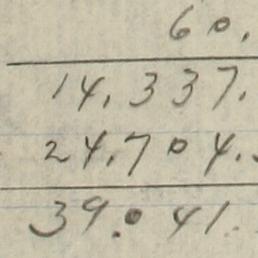 60.
14,337.
24,704.
39.041.